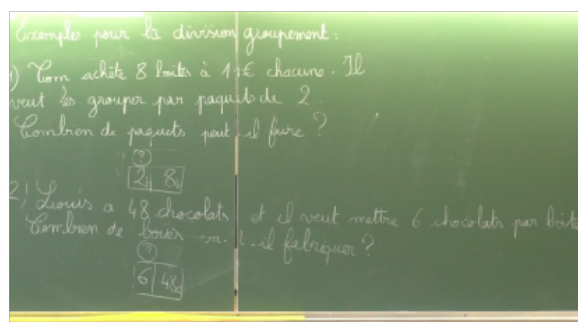 Exemples pour la division groupement :
1) Tom achète 8 boites à 11€ chacune. Il
veut les grouper par paquets de 2.
Combien de paquets peut-il faire ?
?
2 8
2) Louis a 48 chocolats et il veut mettre 6 chocolats par boite
Combien de boites va-t-il fabriquer ?
?
6 48